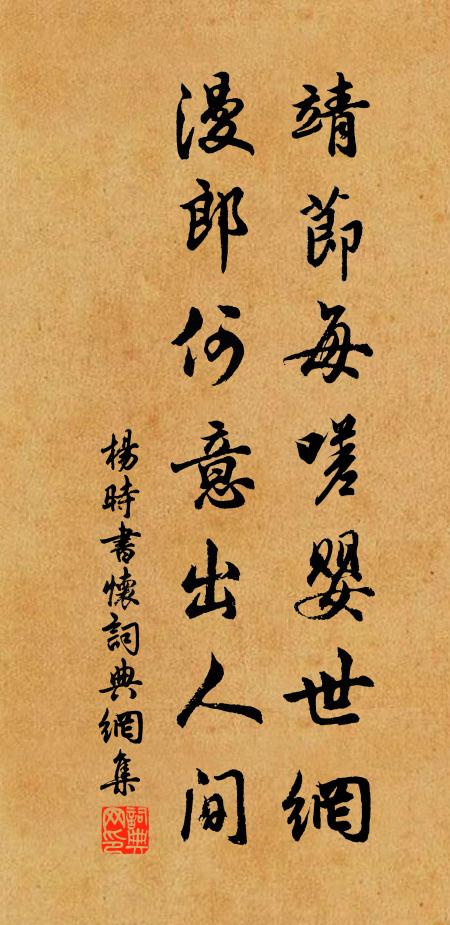 靖節每嗟嬰世網
漫郎何意出人间
楊時書懷詞典網集
詞典网印